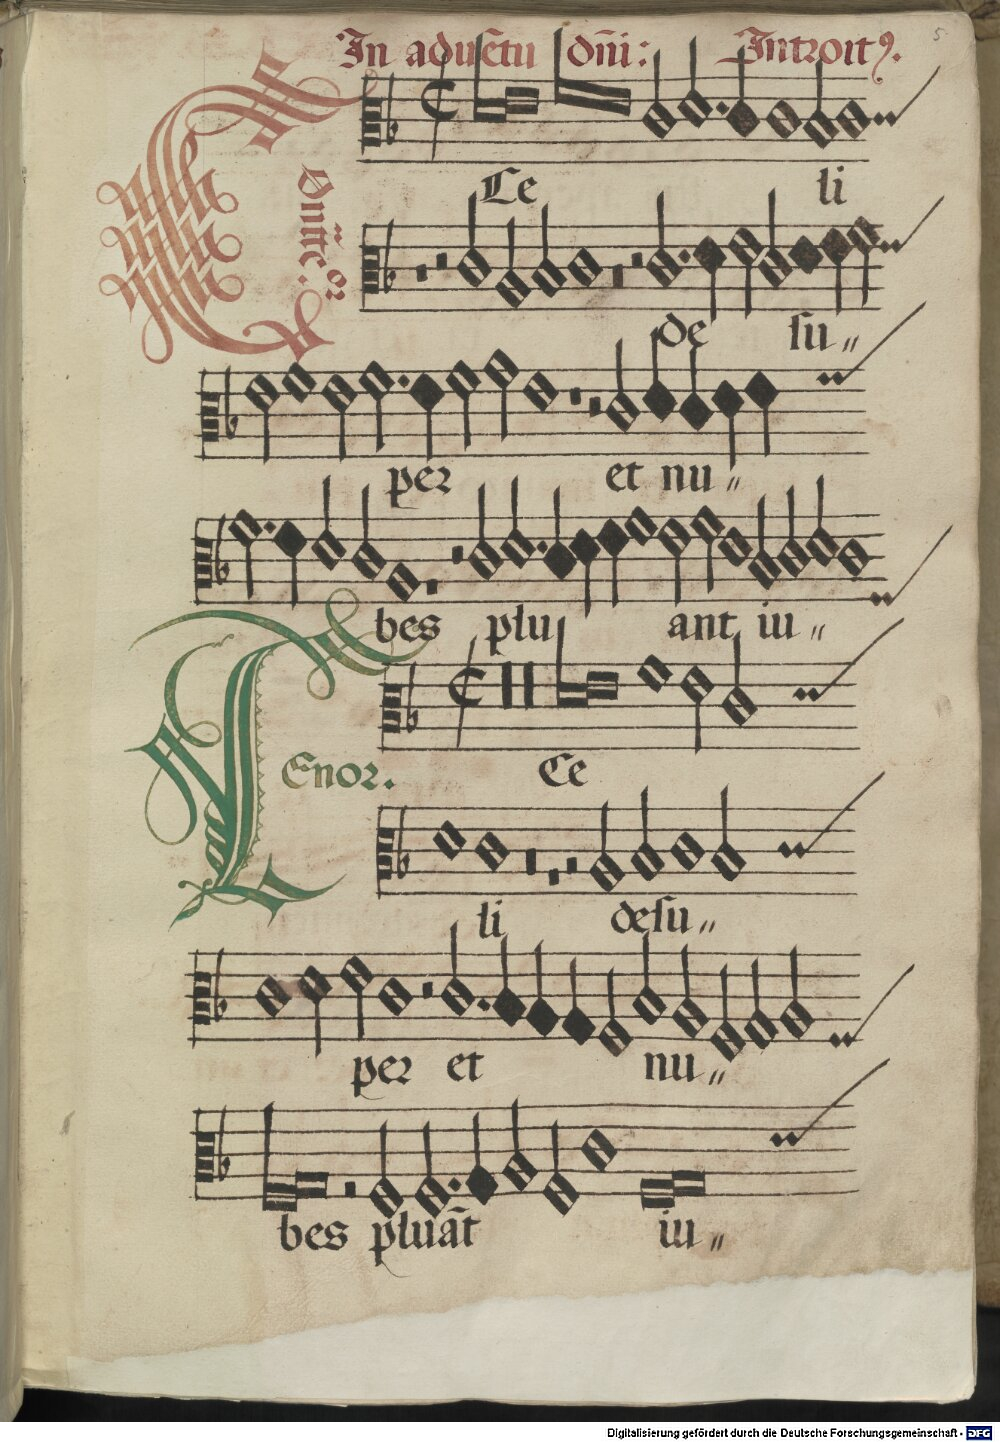 In aduētu dn̄i: Introitꝯ.
5
Ce li
de su〃
per et nu〃
bes plu ant iu〃
Tenor.
Ce
li desu〃
per et nu〃
bes pluāt iu〃
Digitalisierung gefördert durch die Deutsche Forschungsgemeinschaft - DFG